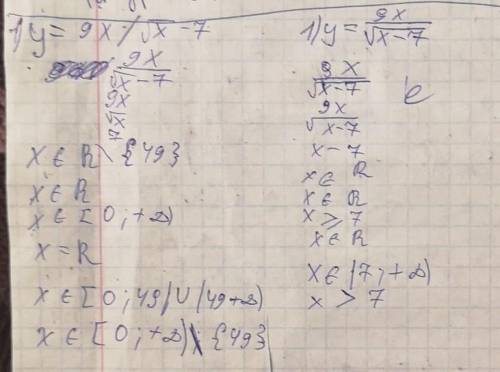 1) y = 9x/√x - 7
9x
√x - 7
9x
√x
7
x ∈ R \ {49}
x ∈ R
x ∈ [0; +∞)
x = R
x ∈ [0; 49) ∪ (49 +∞)
x ∈ [0; +∞) \ {49}
1) y = 9x / √x-7
9x
√x-7
9x
√x-7
x - 7
x ∈ R
x ∈ R
x ≥ 7
x ∈ R
x ∈ (7; +∞)
x > 7